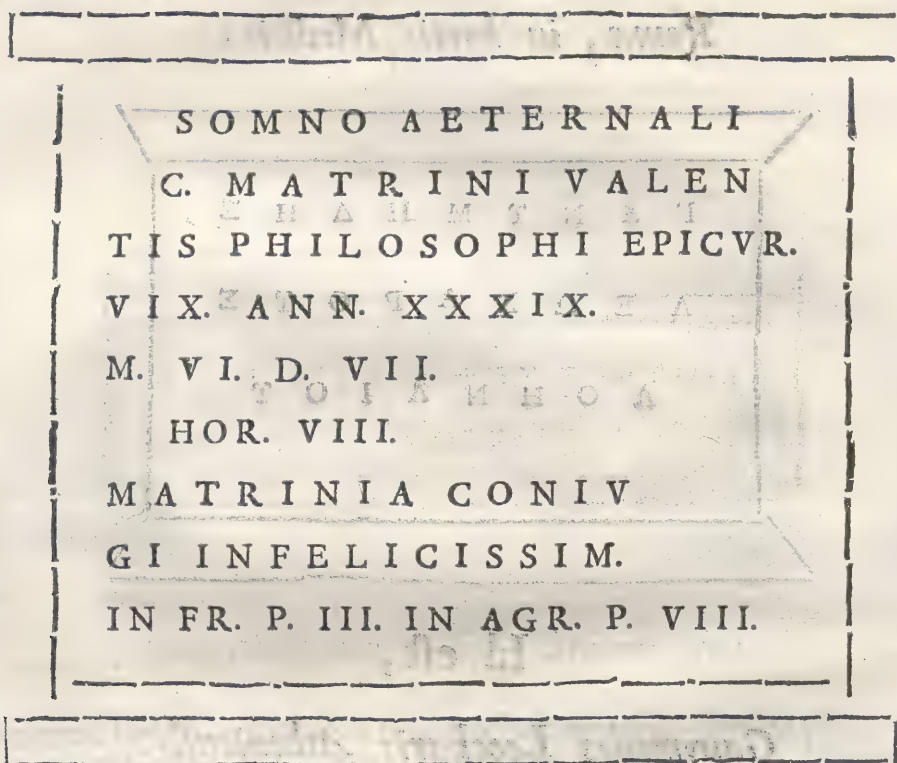 SOMNO AETERNALI
C. MATRINI VALEN
TIS PHILOSOPHI EPICVR.
VIX. ANN. XXXIX.
M. VI. D. VII.
HOR. VIII.
MATRINIA CONIV
GI INFELICISSIM.
IN FR. P. III. IN AGR. P. VIII.